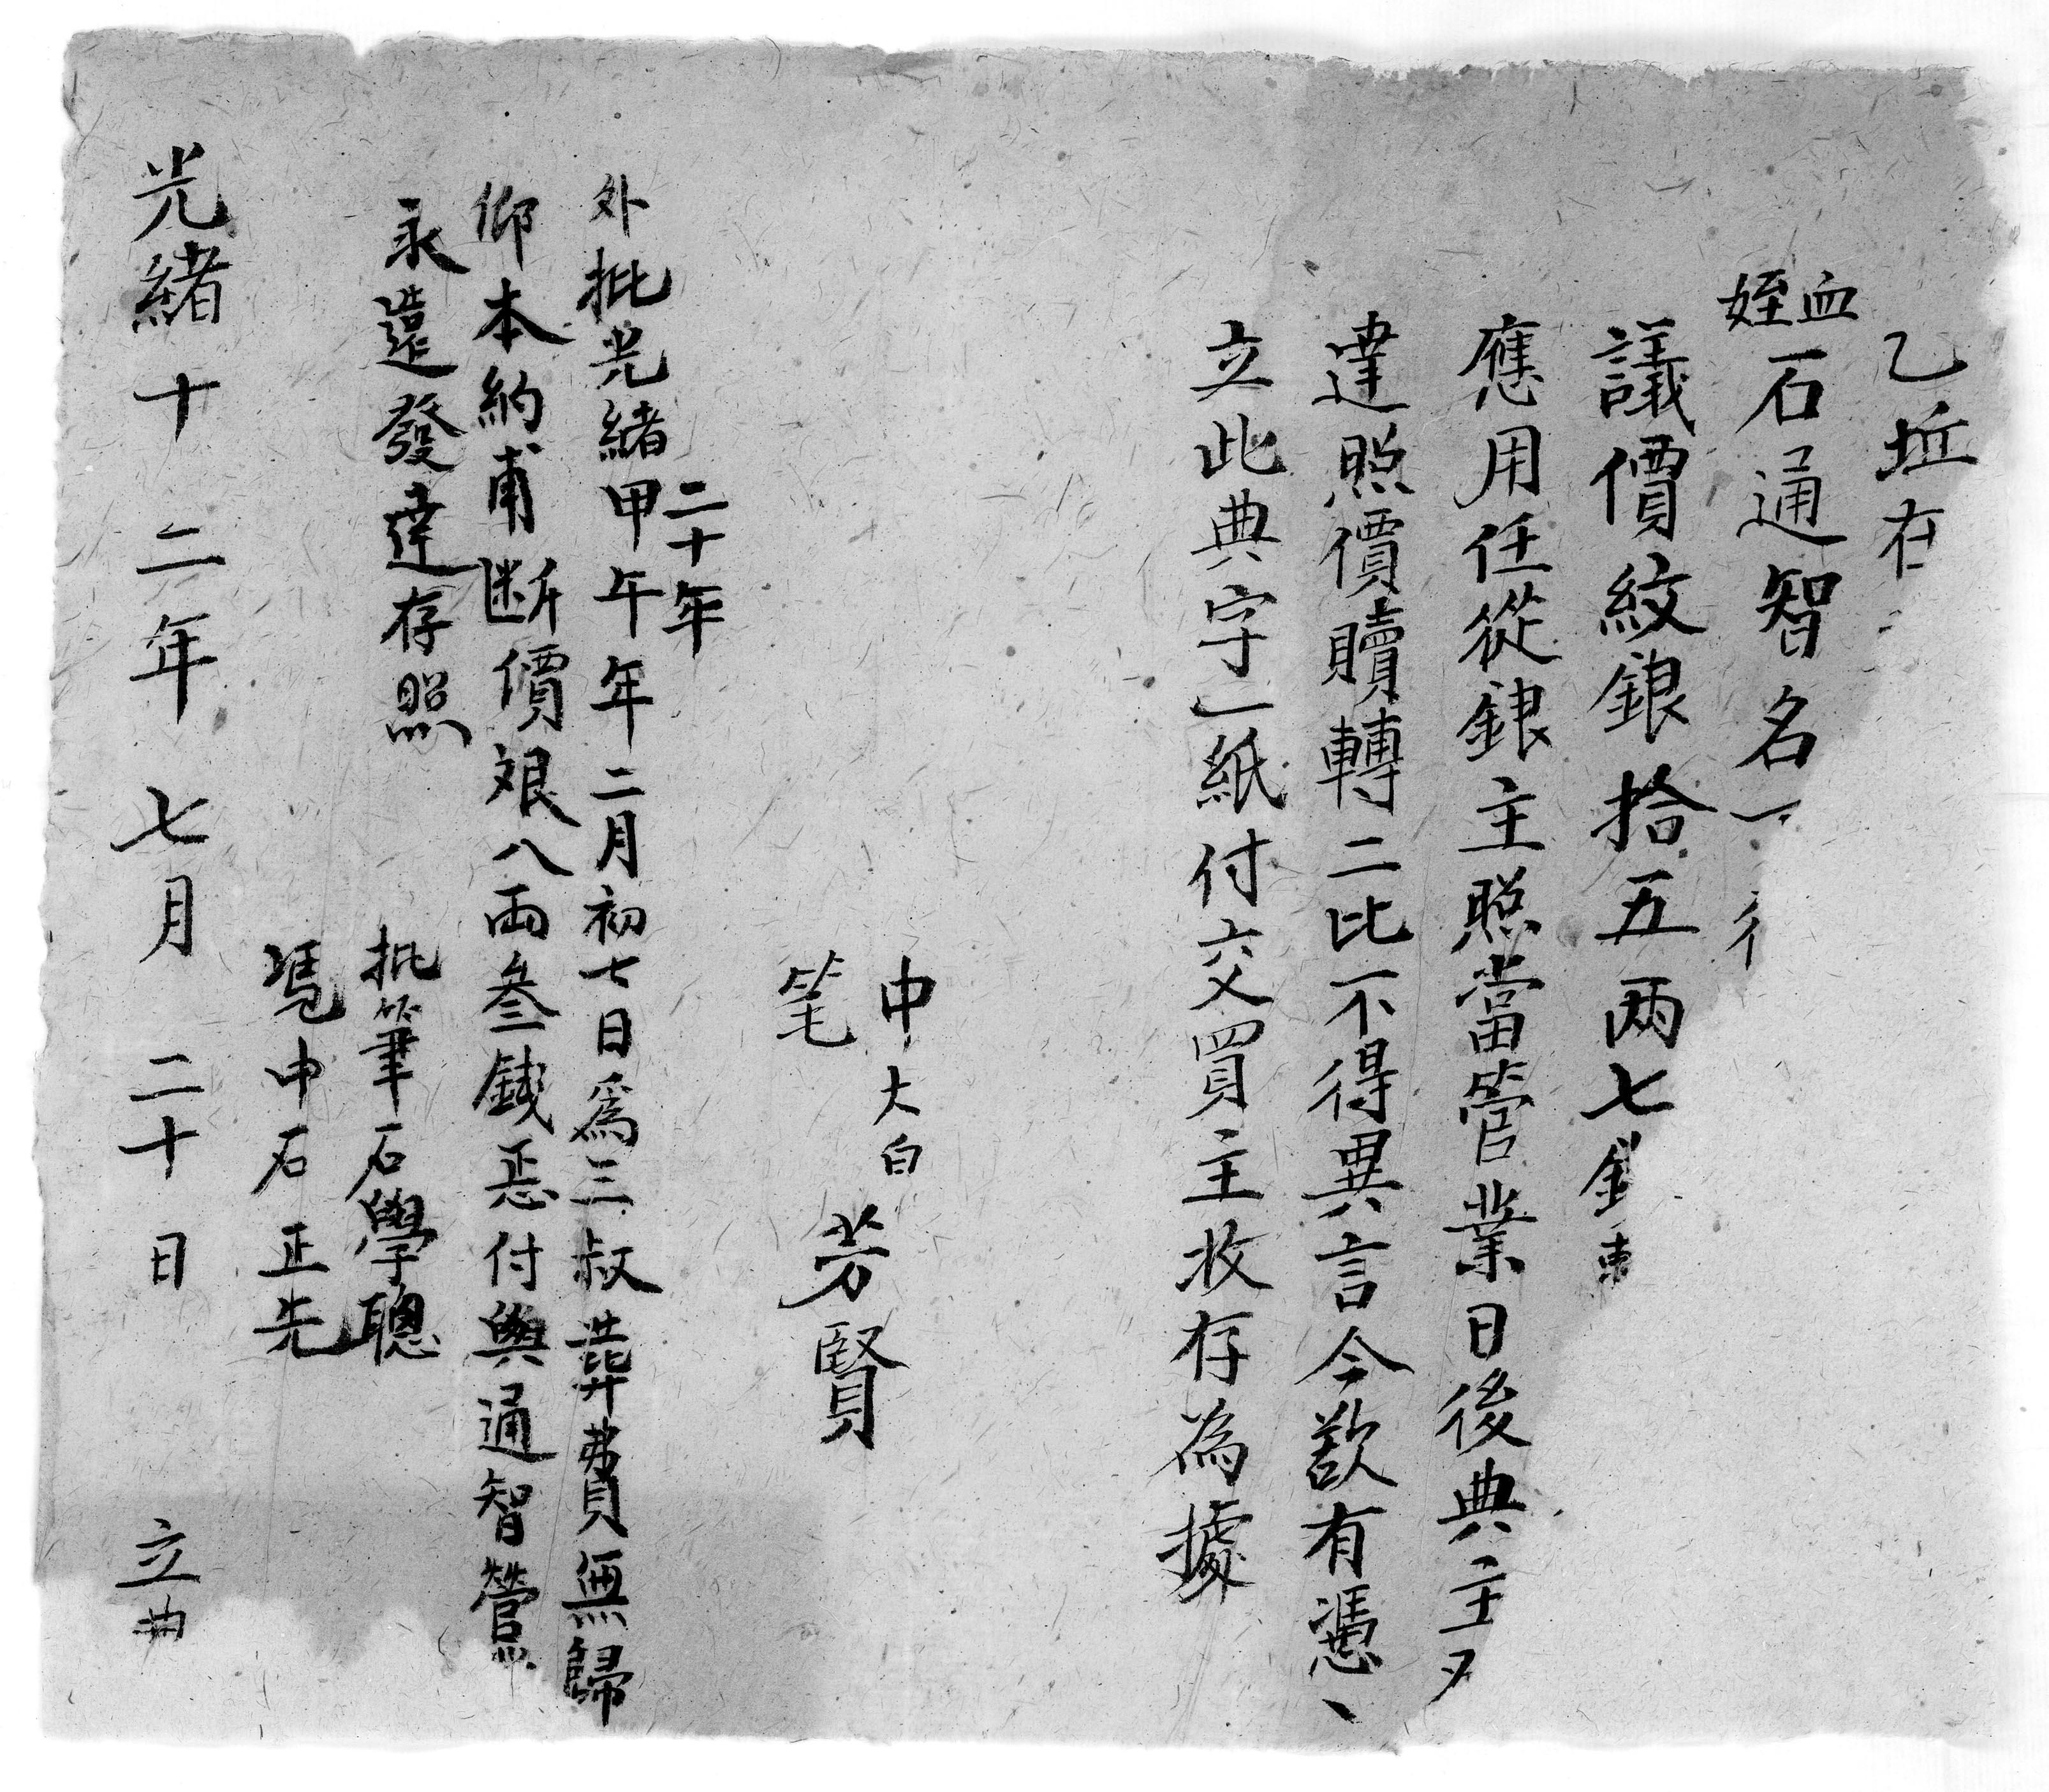 乙坵在
血
姪石通智名
議價紋銀拾五两七
應用任從銀主照當管業日後典主
達照價贖轉二比不得異言今欲有憑
立此典字一紙付交買主收存為據
中大白
笔 芳賢
二十年
外批光緒甲午年二月初七日為三叔葬費無歸
仰本約甫断價艮八両叁錢悉付與通智管
永遠發達存照
批筆石學聰
凴中石正先
光緒十二年七月二十日 立典